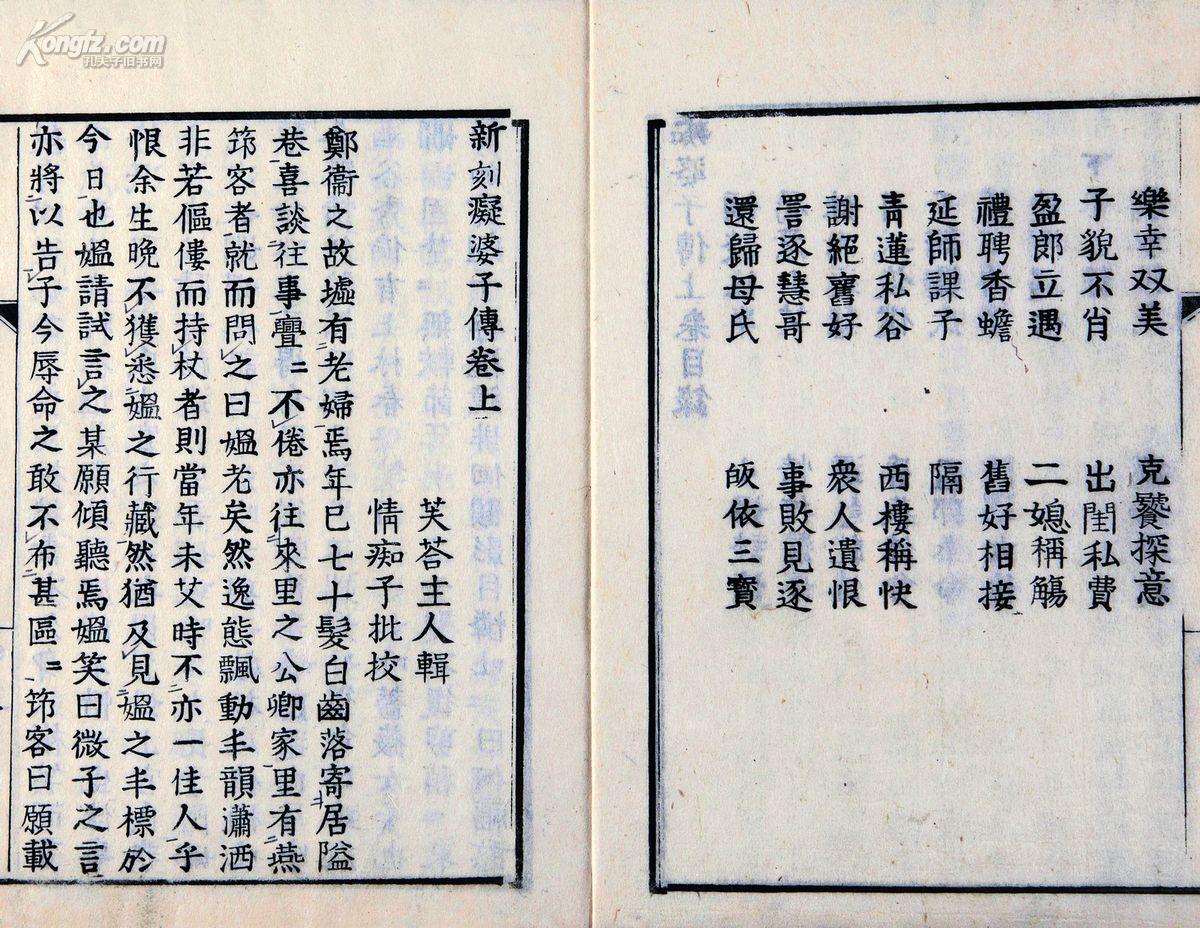 Kongfz.com
孔夫子旧书网
樂幸双美 克饕探意
子貌不肖 出閨私費
盈郎立遇 二媳稱觴
禮聘香蟾 舊好相接
延師課子 隔
青蓮私谷 西樓稱快
謝絕舊好 衆人遺恨
詈逐慧哥 事敗見逐
還歸母氏 皈依三寳
新刻癡婆子傳卷上
芙蓉主人輯
情痴子批挍
鄭衞之故墟有老婦焉年已七十髮白齒落寄居隘
巷喜談往事亹〻不倦亦往來里之公卿家里有燕
筇客者就而問之曰媼老矣然逸態飄動丰韻瀟洒
非若傴僂而持杖者則當年未艾時不亦一佳人乎
恨余生晚不獲悉媼之行藏然猶及見媼之丰標於
今日也媼請試言之某願傾聽焉媼笑曰微子之言
亦將以告子今辱命之敢不布甚區〻筇客曰願載